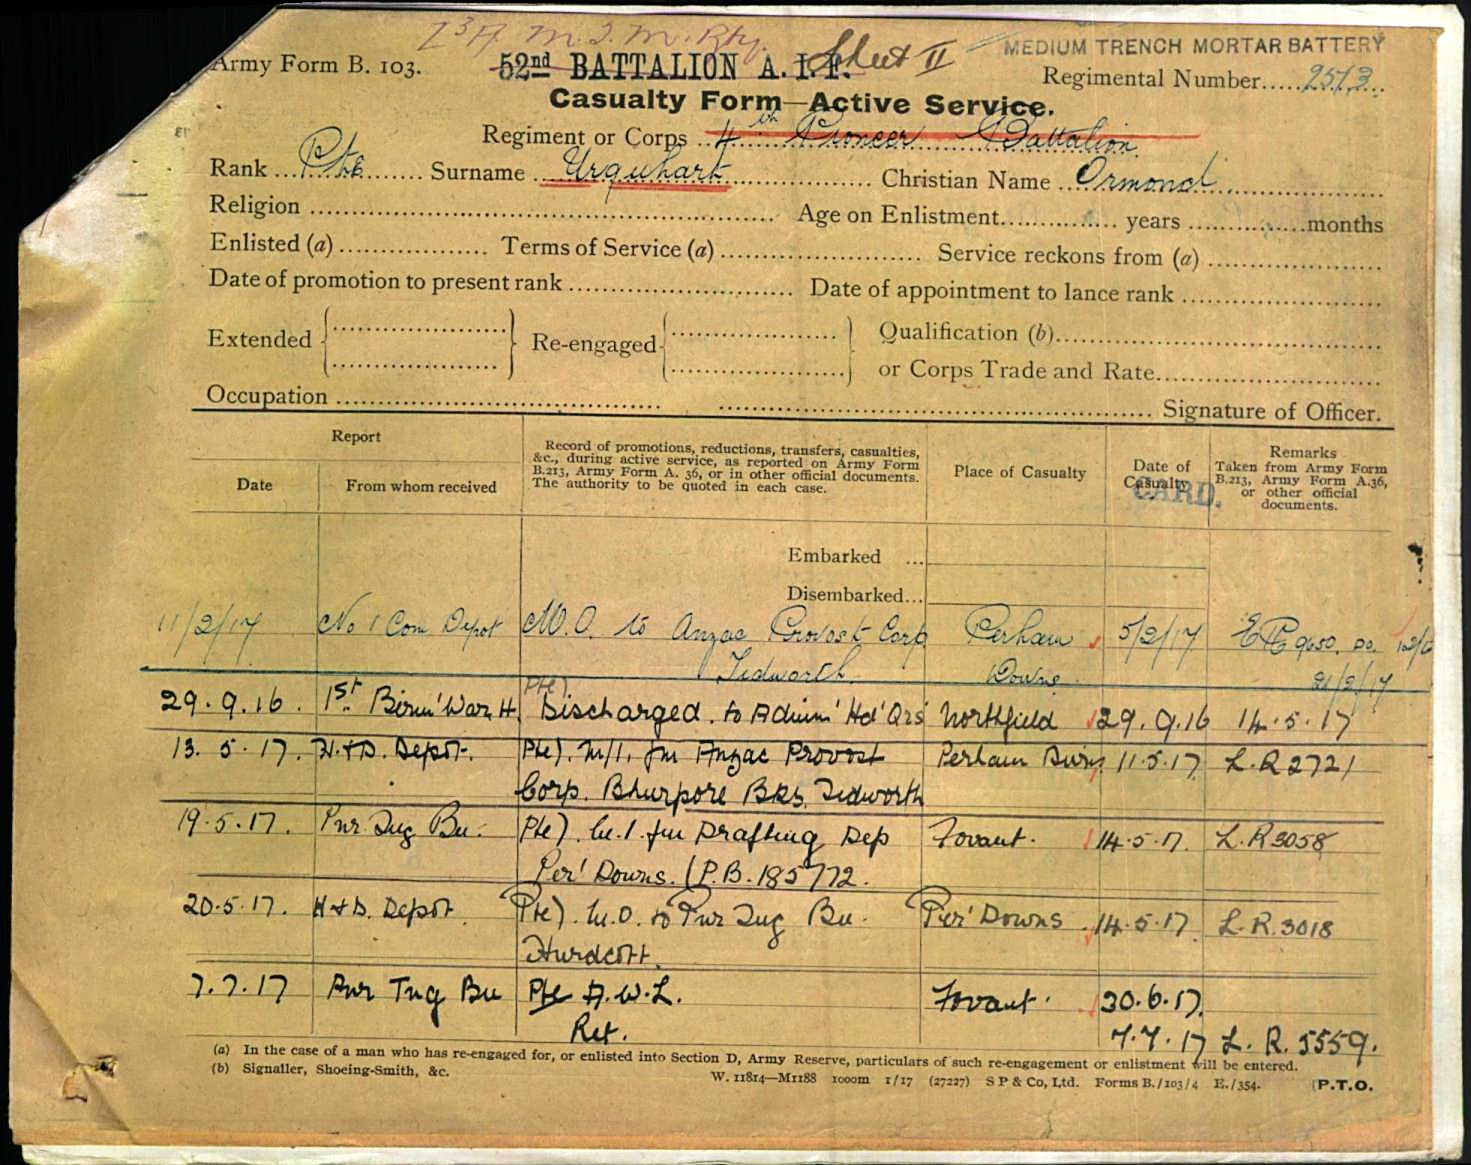 M.T.M. Bty.
Army Form B. 103. 52nd BATTALION A.I.F. Sheet II MEDIUM TRENCH MORTAR BATTERY
Regimental Number.....2573...
Casualty Form—Active Service.
Regiment or Corps ..4th Pioneer Battalion
Rank ... Pte ... Surname ... Urquhart ... Christian Name ... Ormond ...
Religion ... Age on Enlistment... years ... months
Enlisted (a) ... Terms of Service (a) ... Service reckons from (a) ...
Date of promotion to present rank ... Date of appointment to lance rank ...
Extended Re-engaged Qualification (b)...
or Corps Trade and Rate...
Occupation ... Signature of Officer.
Report
Date From whom received
Record of promotions, reductions, transfers, casualties, &c., during active service, as reported on Army Form B.213, Army Form A. 36, or in other official documents. The authority to be quoted in each case.
Place of Casualty
Date of Casualty
CARD.
Remarks
Taken from Army Form B.213, Army Form A.36, or other official documents.
Embarked ...
Disembarked...
11/2/17 No 1 Com Depot M.O. to Anzac Provost Corp Perham 5/2/17 9650. DO.
Tidworth. Downs. 21/2/17
29.9.16. 1st Birm' War H. Pte). Discharged. to Admin' Hd' Qrs Northfield 29.9.16 14.5.17
13. 5. 17. H.&D. Depot. Pte). M/I. fm Anzac Provost Perham Downs 11.5.17 L.R 2721
Corp. Bhurpore Bks. Tidworth
19.5.17. Pnr Tng Bn. Pte). M.I. fm Drafting Dep Fovant. 14.5.17. L.R 3058
Per' Downs. (P.B. 185772.
20.5.17. H&D. Depot. Pte). M.O. to Pnr Tng Bn. Per' Downs 14.5.17 L.R. 3018
Hurdcott.
7.7.17 Pnr Tng Bn Pte A.W.L. Fovant. 30.6.17.
Ret. 7.7.17 L.R. 5559.
(a) In the case of a man who has re-engaged for, or enlisted into Section D, Army Reserve, particulars of such re-engagement or enlistment will be entered.
(b) Signaller, Shoeing-Smith, &c. W. 11814—M1188 1000m 1/17 (27227) S P & Co, Ltd. Forms B./103/4 E./354. (P.T.O.